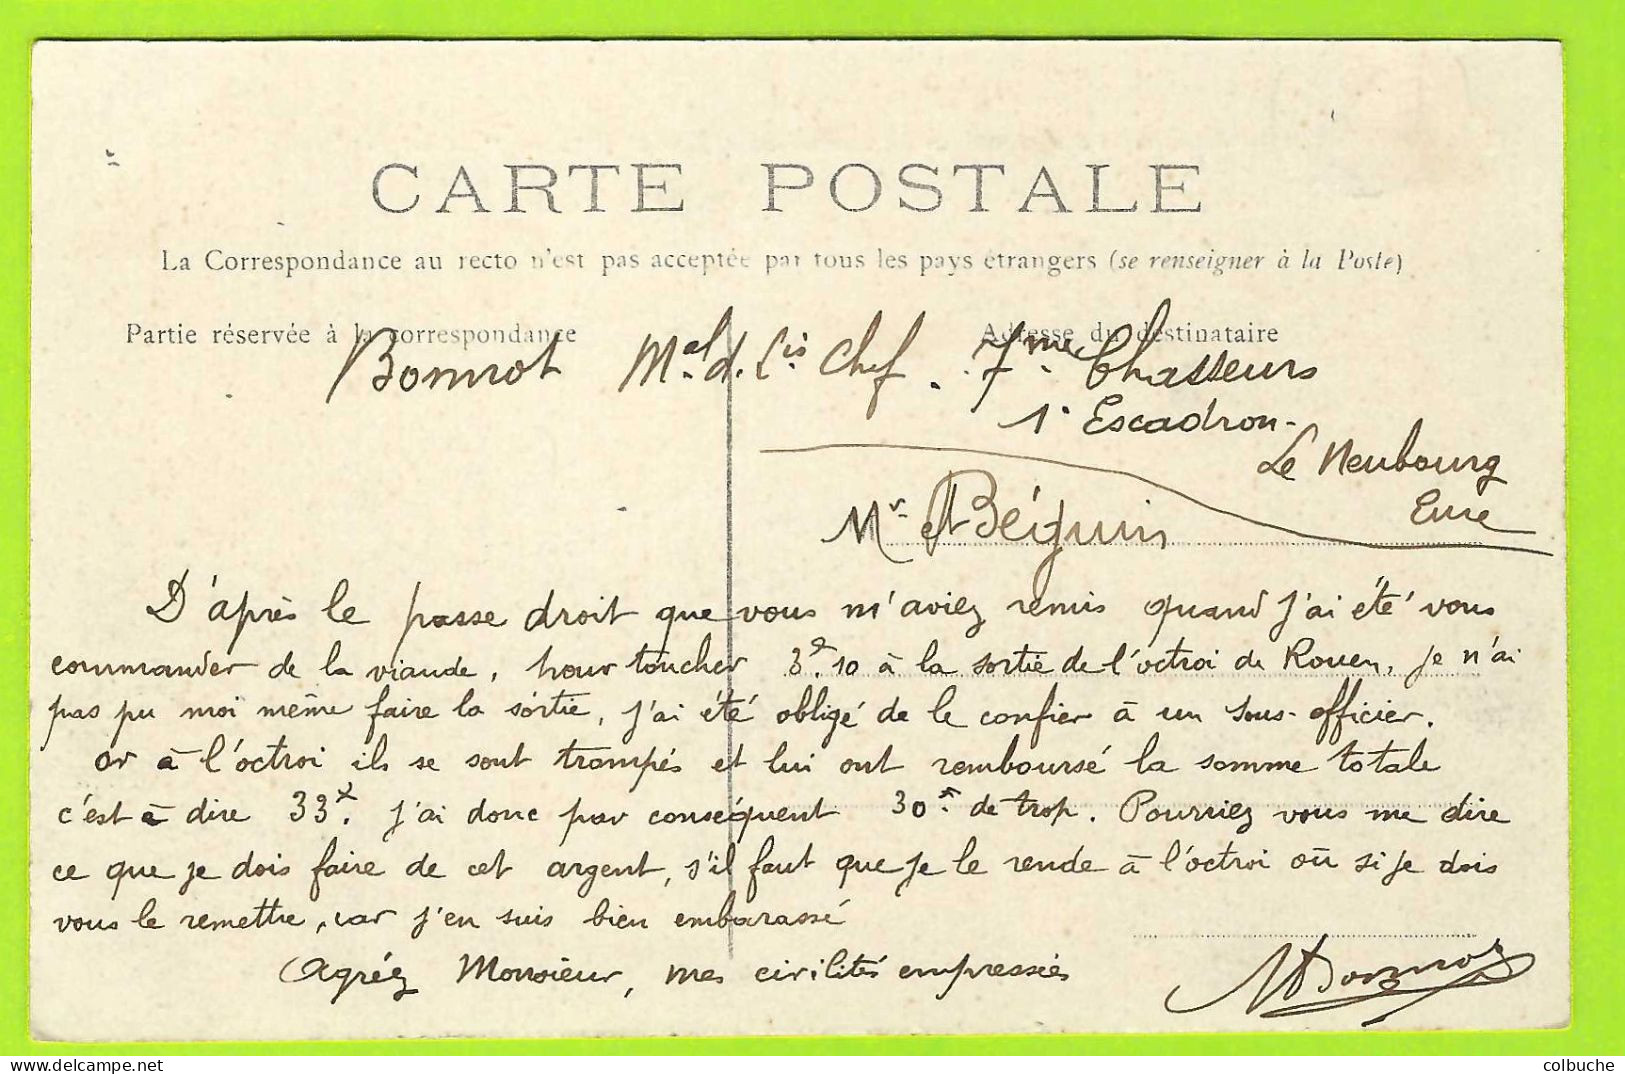 CARTE POSTALE
La Correspondance au recto n'est pas acceptée par tous les pays étrangers (se renseigner à la Poste)
Partie réservée à la correspondance
Adresse du destinataire
Bonnrot Mal. d. Lis Chef. 7me Chasseurs
1° Escadron-
Le Neubourg
Eure
Mr Béguin
D'après le passe droit que vous m'aviez remis quand j'ai été vous
commander de la viande, pour toucher 3f.10 à la sortie de l'octroi de Rouen, je n'ai
pas pu moi même faire la sortie, j'ai été obligé de le confier à un sous-officier.
or à l'octroi ils se sont trompés et lui ont remboursé la somme totale
c'est à dire 33f. j'ai donc par conséquent 30f. de trop. Pourriez vous me dire
ce que je dois faire de cet argent, s'il faut que je le rende à l'octroi où si je dois
vous le remettre, car j'en suis bien embarassé
Agréez Monsieur, mes civilités empressées
colbuche